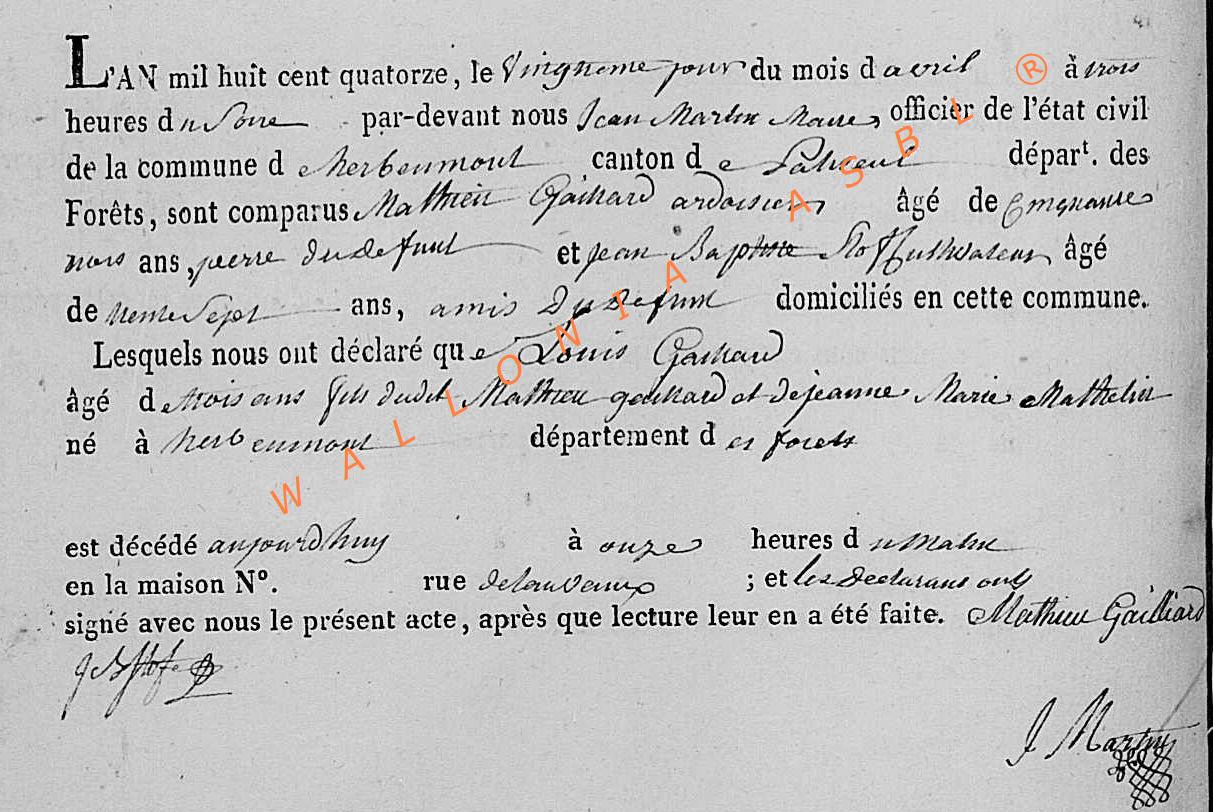 L'AN mil huit cent quatorze, le vingtieme jour du mois d avril à trois
heures du soire par-devant nous Jean Martin Maire, officier de l'état civil
de la commune d e herbeumont canton d e paliseul départ. des
Forêts, sont comparus Mathieu Gaillard ardoisier, âgé de cinquante
trois ans, pierre du defunt et jean Baptiste âgé
de trente Sept ans, amis Du Defunt domiciliés en cette commune.
Lesquels nous ont déclaré que Louis Gaillard
âgé de trois ans fils dudit Mathieu gaillard et de jeanne Marie Mathelin
né à herbeumont département d es forets
est décédé aujourdhuy à onze heures d u Matin
en la maison N°. rue ; et les Declarans onts
signé avec nous le présent acte, après que lecture leur en a été faite. Mathieu Gailliard
J Martin
WALLONIA ASBL ®